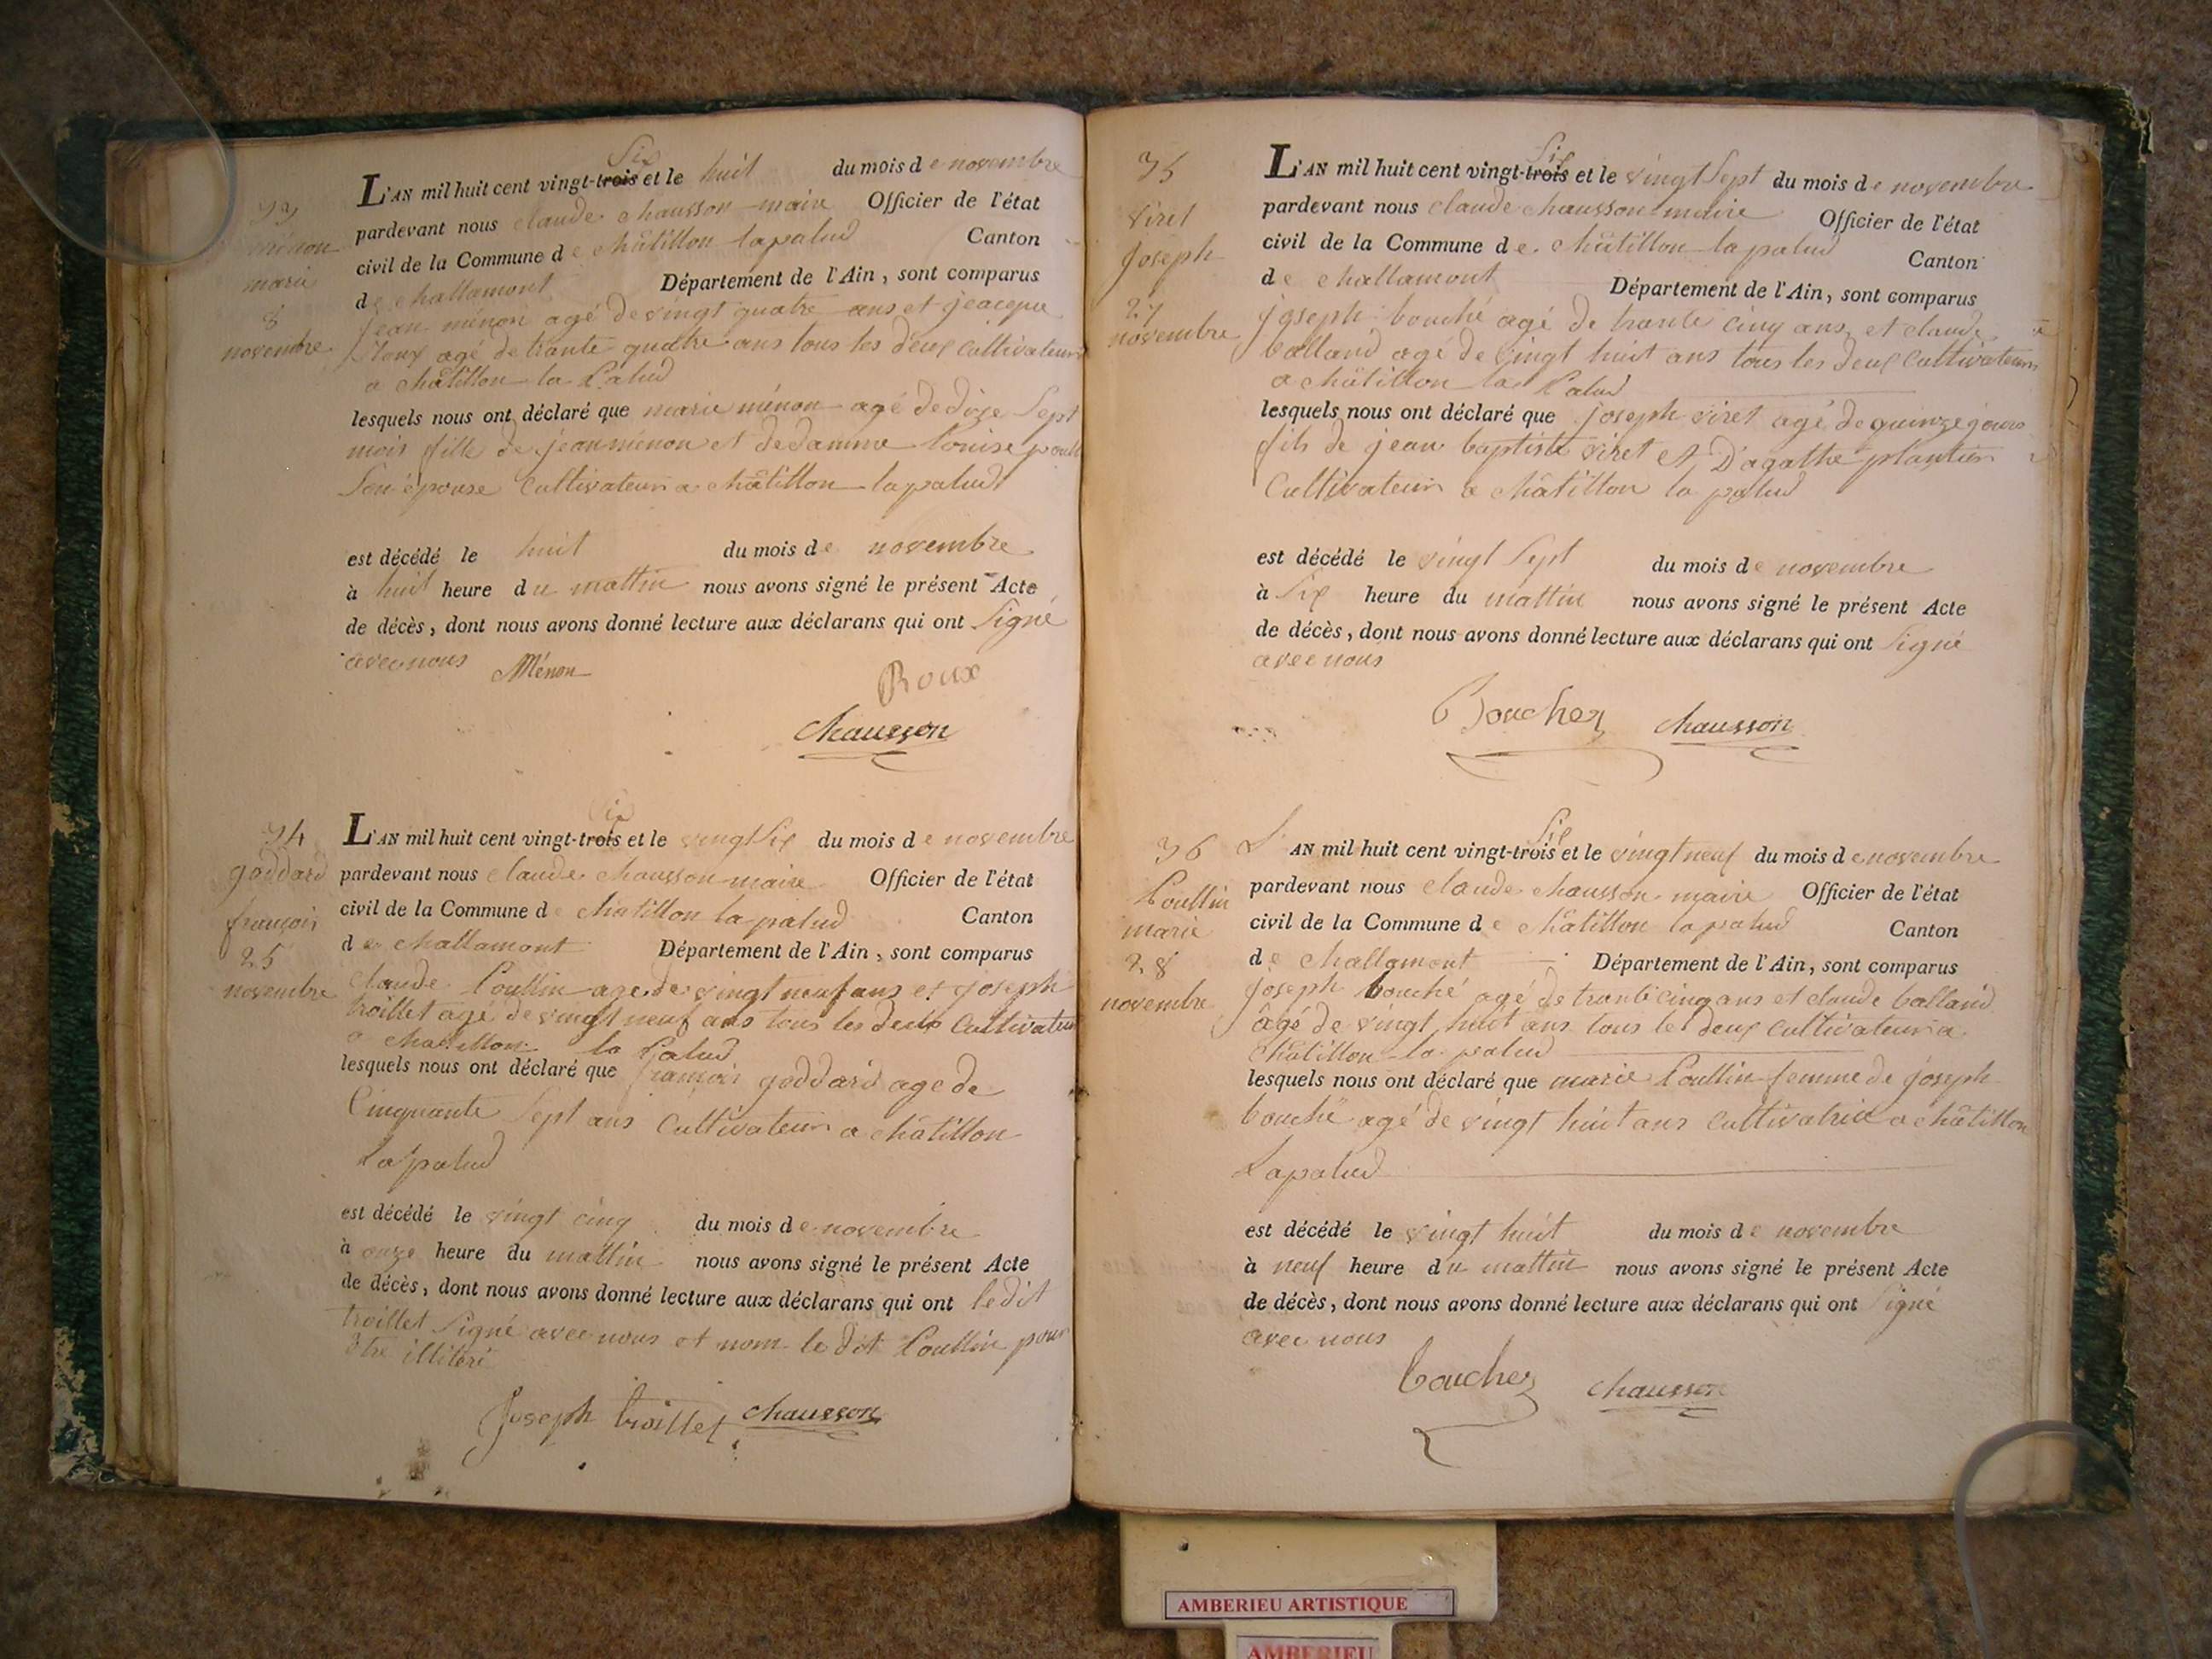 33
ménon
marie
8
novembre
Six
L'AN mil huit cent vingt-trois et le huit du mois de novembre
pardevant nous claude chausson maire Officier de l'état
civil de la Commune de châtillon lapalud Canton
de challamont Département de l'Ain, sont comparus
jean ménon agé de vingt quatre ans et jeacque
roux agé de trante quatre ans tous les deux cultivateurs
a châtillon la Palud
lesquels nous ont déclaré que marie ménon agé de dixe Sept
mois fille de jean ménon et de damme louise
Son épouse Cultivateurs a châtillon lapalud
est décédé le huit du mois de novembre
à huit heure du mattin nous avons signé le présent Acte
de décès, dont nous avons donné lecture aux déclarans qui ont Signé
avec nous Ménon
Roux
chausson
34
goddard
françois
25
novembre
Six
L'AN mil huit cent vingt-trois et le vingt Six du mois de novembre
pardevant nous claude chausson maire Officier de l'état
civil de la Commune de châtillon la palud Canton
de challamont Département de l'Ain, sont comparus
claude Poullin age de vingt neuf ans et joseph
troillet age de vingt neuf ans tous les deux Cultivateur
a châtillon la Palud
lesquels nous ont déclaré que françois goddard age de
Cinquante Sept ans Cultivateur a châtillon
La palud
est décédé le vingt cinq du mois de novembre
à onze heure du mattin nous avons signé le présent Acte
de décès, dont nous avons donné lecture aux déclarans qui ont ledit
troillet Signé avec nous et nom le dit Poullin pour
être illiteré
Joseph troillet chausson
35
Viret
Joseph
27
novembre
Six
L'AN mil huit cent vingt-trois et le vingt Sept du mois de novembre
pardevant nous claude chausson maire Officier de l'état
civil de la Commune de châtillon la palud Canton
de challamont Département de l'Ain, sont comparus
joseph bouché agé de trante cinq ans et claude
balland agé de vingt huit ans tous les deux Cultivateurs
a châtillon la Palud
lesquels nous ont déclaré que joseph viret agé de quinze jours
fils de jean baptiste viret et D'agathe plantier
Cultivateurs a châtillon la palud
est décédé le vingt Sept du mois de novembre
à Six heure du mattin nous avons signé le présent Acte
de décès, dont nous avons donné lecture aux déclarans qui ont Signé
avec nous
Boucher chausson
36
Poullin
marie
28
novembre
Six
L'AN mil huit cent vingt-trois et le vingt neuf du mois de novembre
pardevant nous claude chausson maire Officier de l'état
civil de la Commune de châtillon la palud Canton
de challamont Département de l'Ain, sont comparus
joseph bouché agé de trante cinq ans et claude balland
âgé de vingt huit ans tous les deux cultivateurs a
châtillon la palud
lesquels nous ont déclaré que marie Poullin femme de joseph
bouché agé de vingt huit ans Cultivatrice a châtillon
Lapalud
est décédé le vingt huit du mois de novembre
à neuf heure du mattin nous avons signé le présent Acte
de décès, dont nous avons donné lecture aux déclarans qui ont Signé
avec nous
boucher chausson
AMBERIEU ARTISTIQUE
AMBERIEU